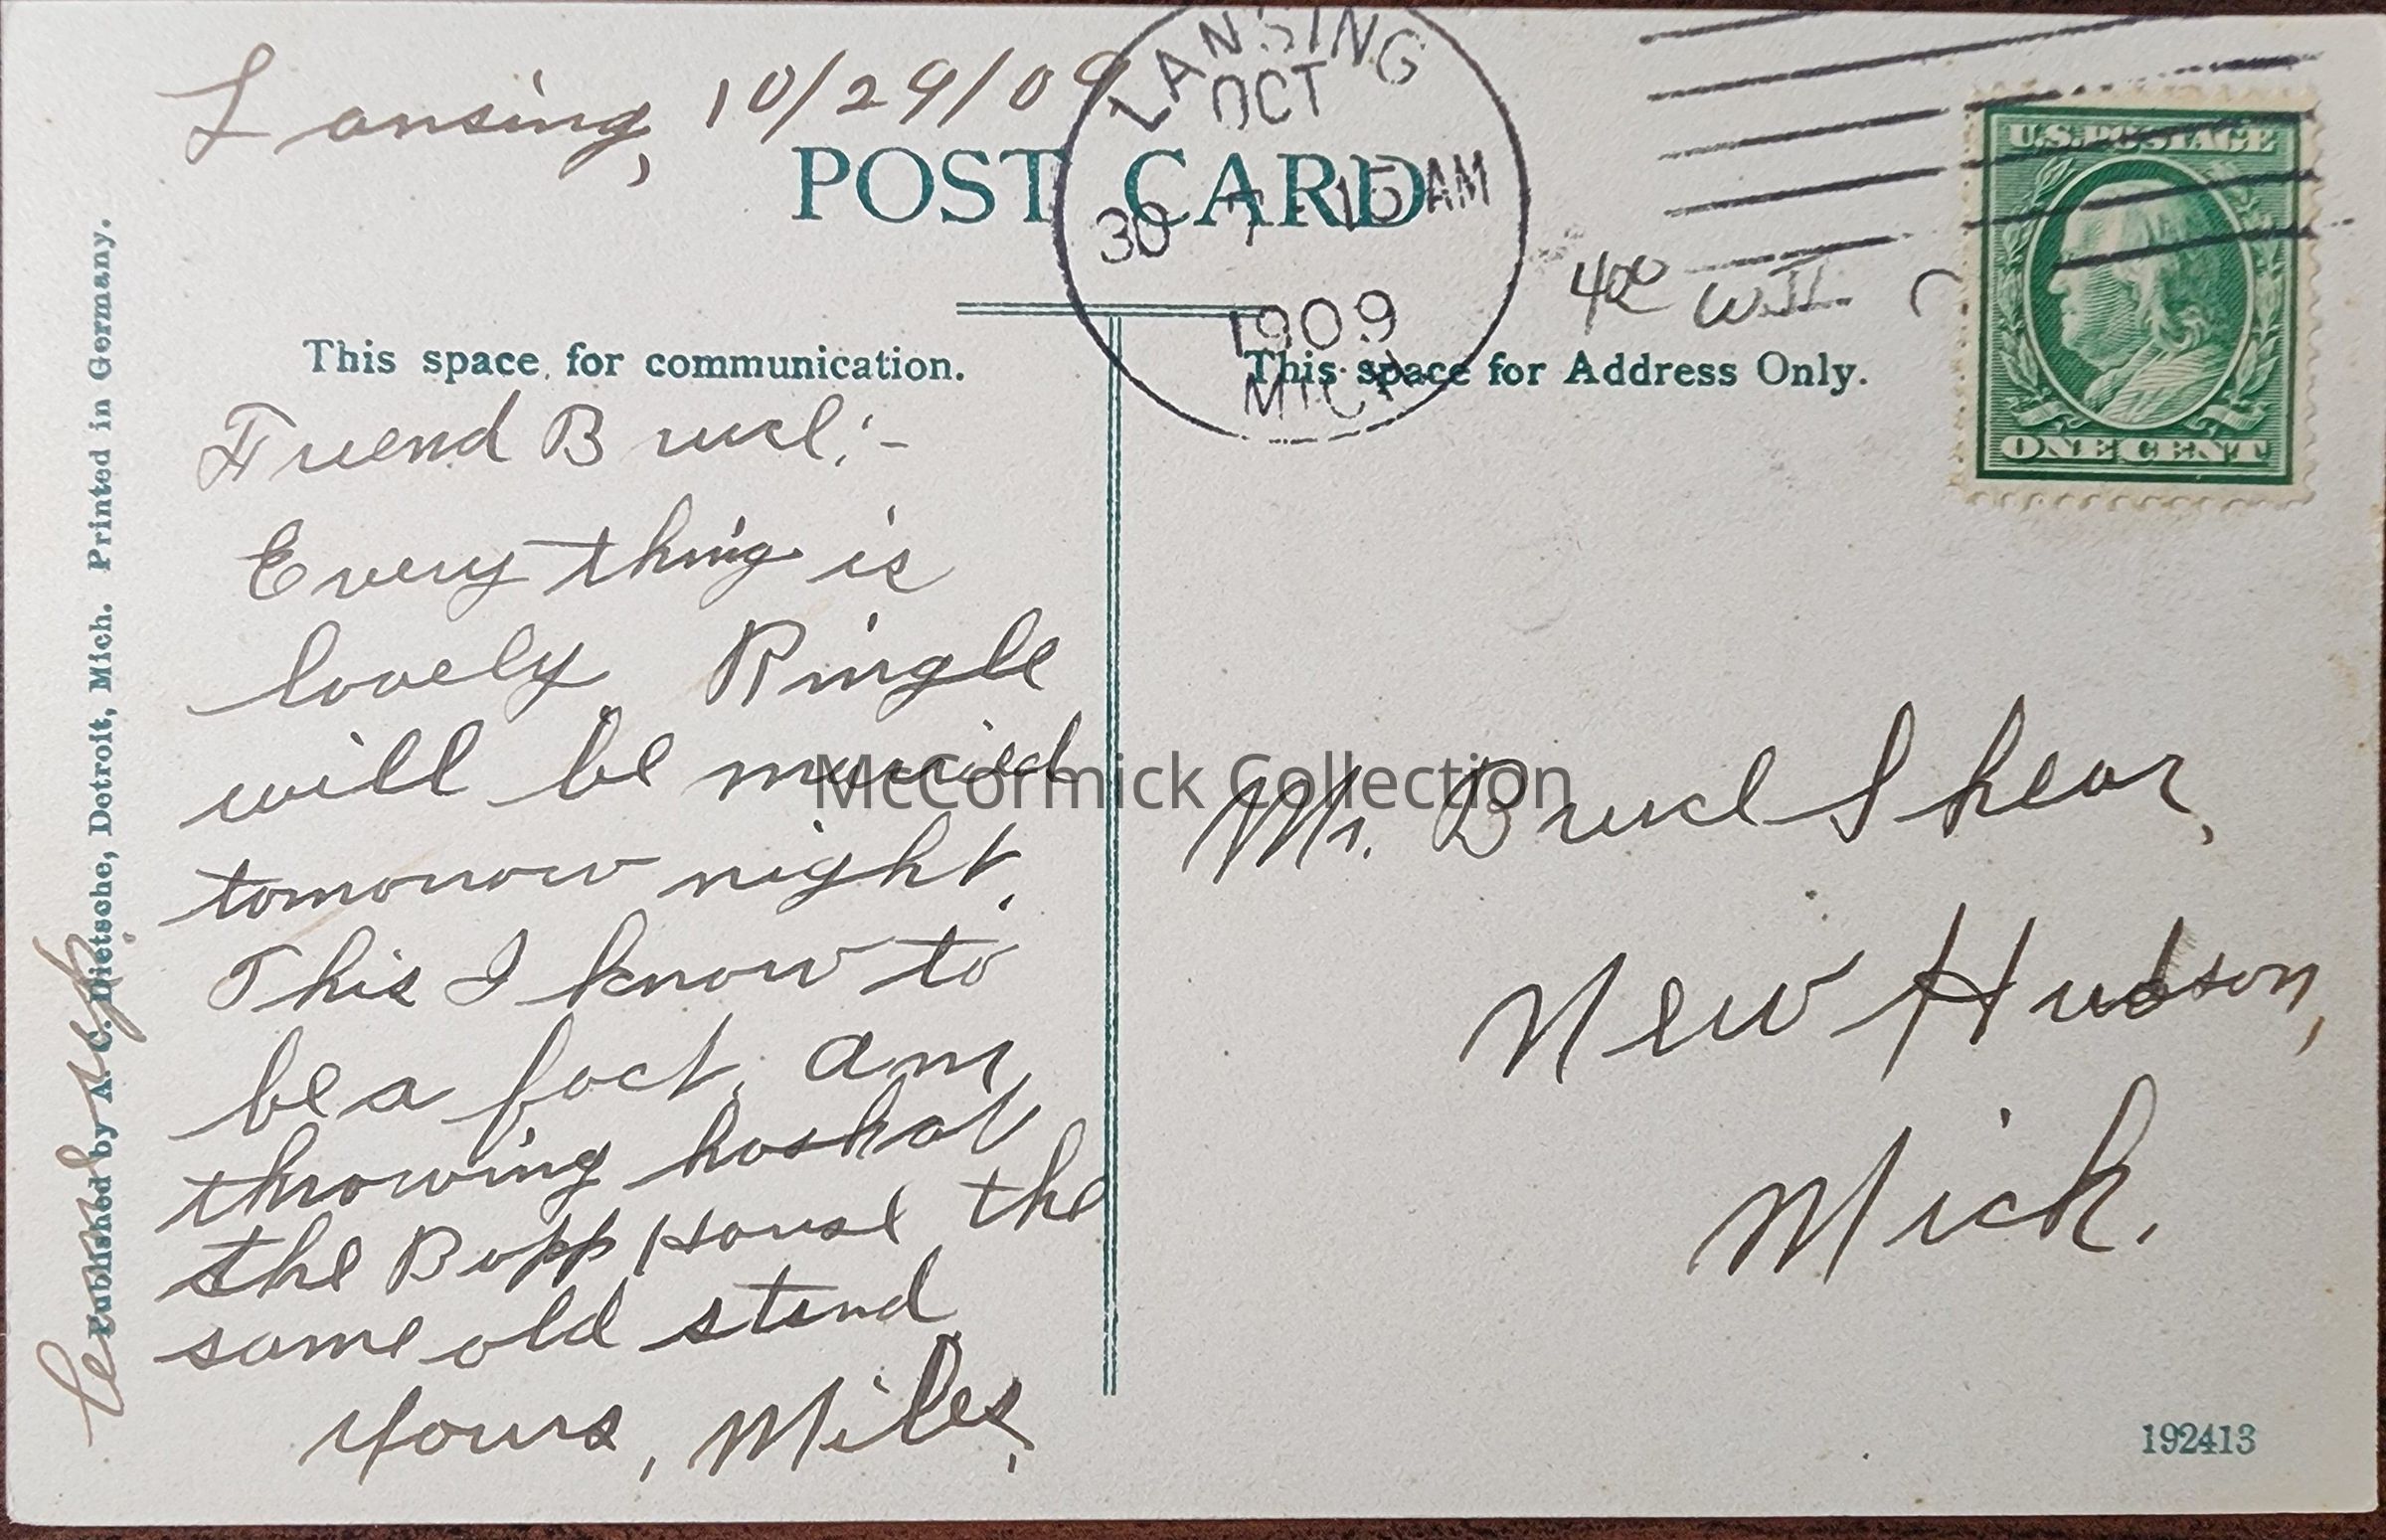 Lansing, 10/29/09
POST CARD
LANSING
OCT
30 7-15 AM
1909
MICH.
U.S. POSTAGE
ONE CENT
400
This space for communication.
This space for Address Only.
Friend Bruce:-
Every thing is
lovely. Ringle
will be married
tomorrow night.
This I know to
be a fact. Am
throwing hash at
the Bopp House the
same old stand
Yours, Miles.
Mr. Bruce Shear,
New Hudson,
Mich.
Published by A. C. Dietsche, Detroit, Mich. Printed in Germany.
up
192413
McCormick Collection